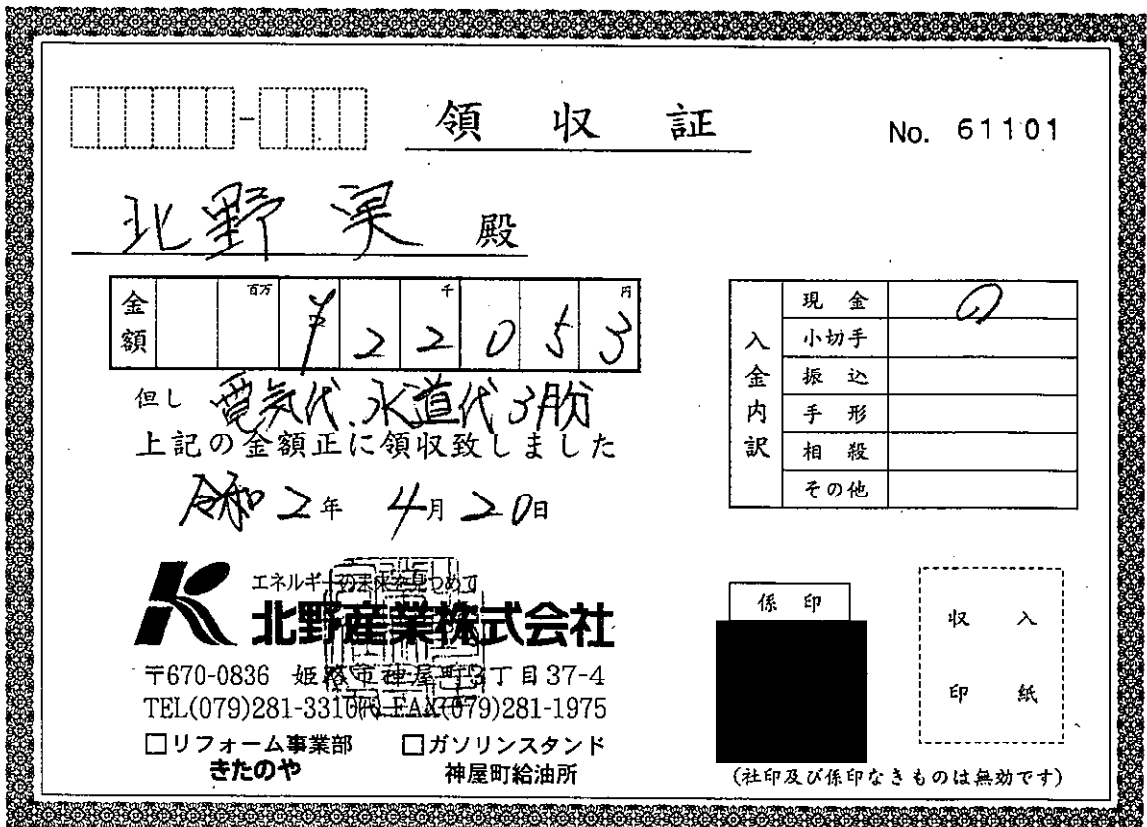 領収証
No. 61101
北野 実 殿
金額 百万 千 円
¥22053
但し 電気代、水道代3月分
上記の金額正に領収致しました
令和2年 4月20日
入金内訳
現金
小切手
振込
手形
相殺
その他
エネルギーの未来を見つめて
北野産業株式会社
〒670-0836 姫路市神屋町3丁目37-4
TEL(079)281-3310(代) FAX(079)281-1975
□リフォーム事業部 □ガソリンスタンド
きたのや 神屋町給油所
係印
収入
印紙
(社印及び係印なきものは無効です)